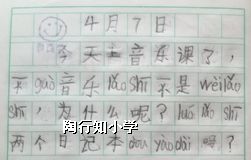 4月7日
今天上音乐课了,
不gào音乐lǎo shī不是wèi lǎo
shī,为什么呢?lúo lǎo shī
两个日记本dōu yào dài吗?
陶行知小学